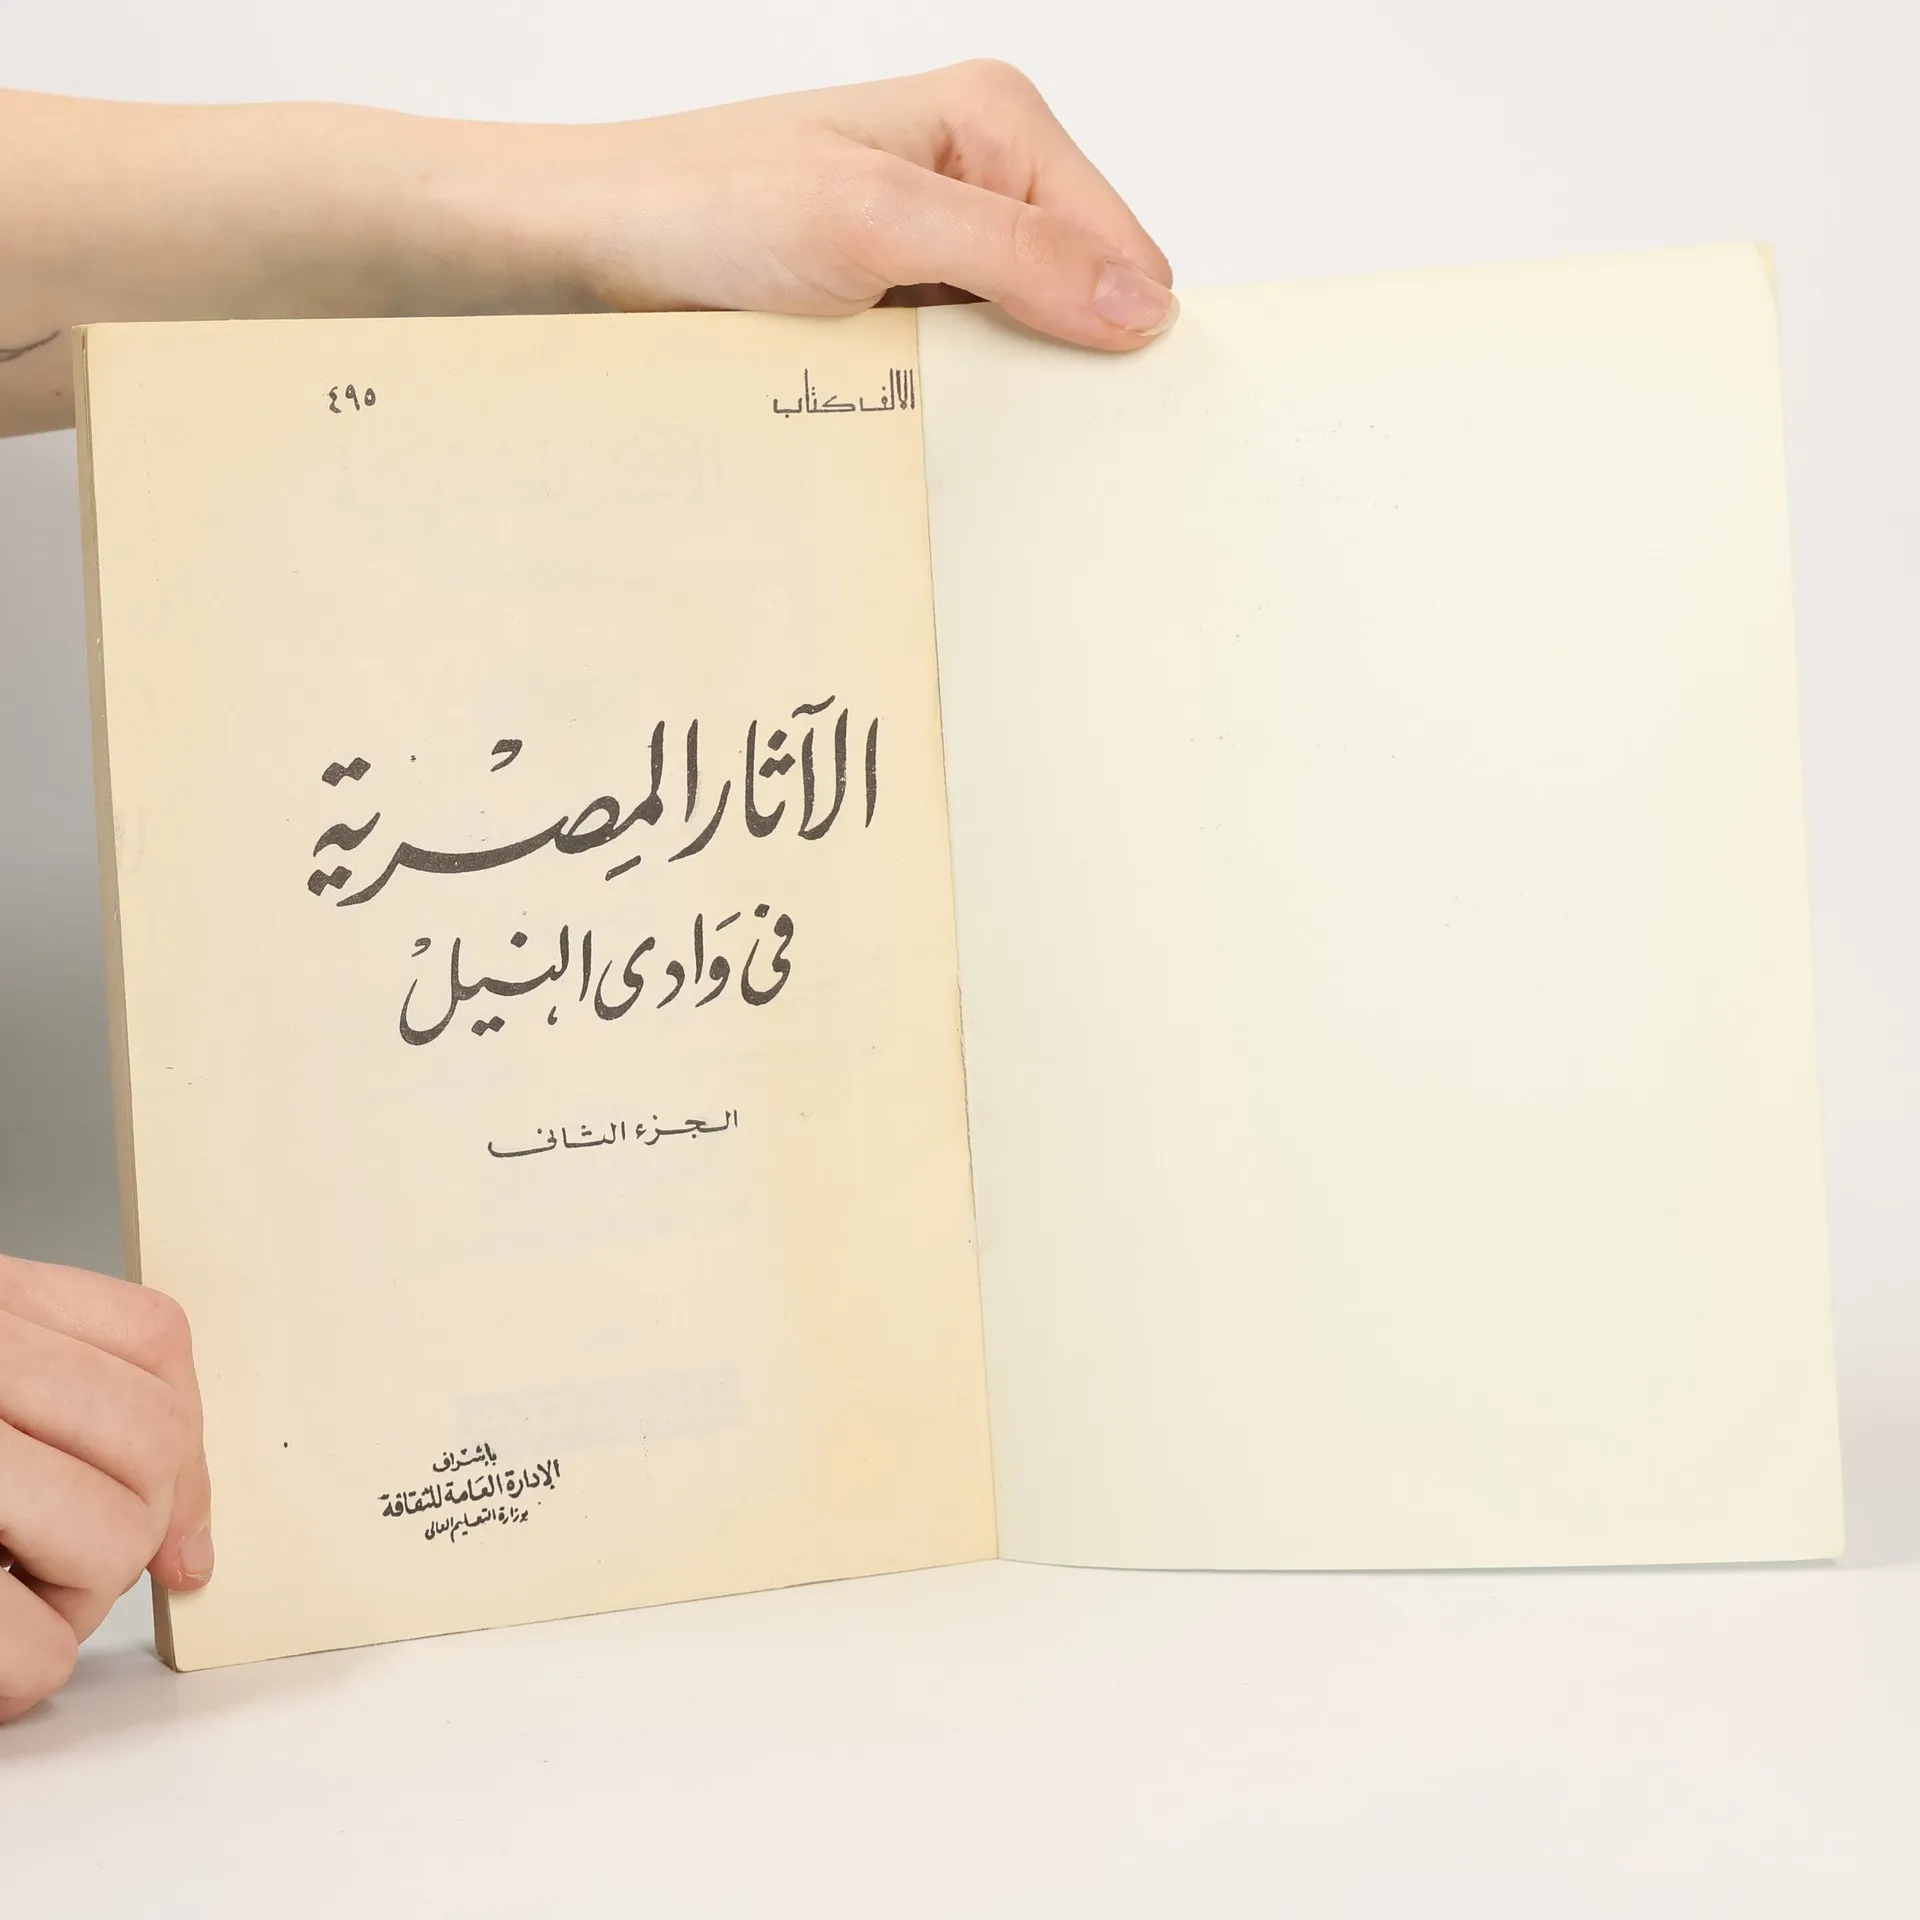 الالف كتاب
٤٩٥
الآثار المِصْرية
فى وَادى النِيلْ
الجزء الثانى
بإشراف
الإدارة العَامة للثقافة
بوزارة التعليم العالى